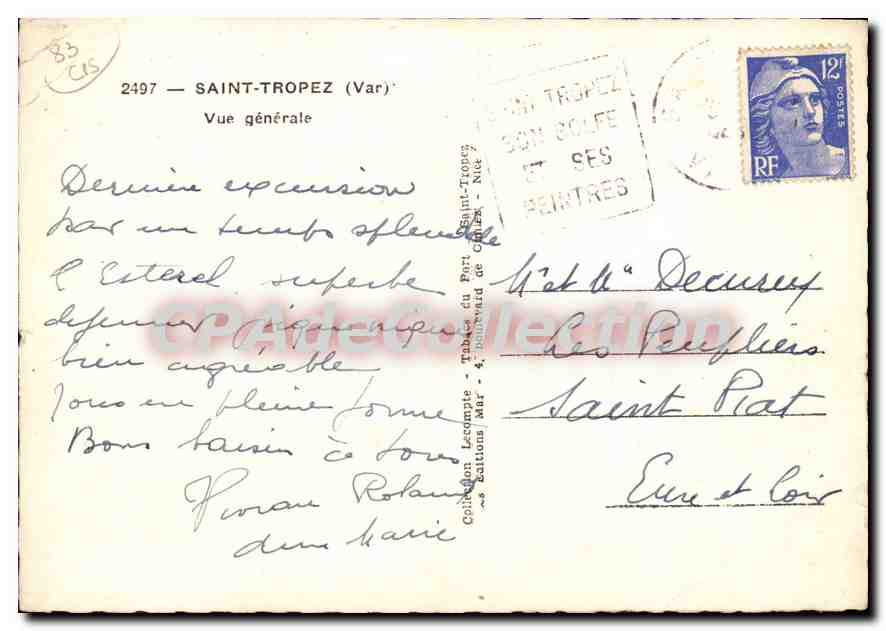 83
CIS
2497 — SAINT-TROPEZ (Var)
Vue générale
SAINT TROPEZ
SON GOLFE
ET SES
PEINTRES
12F
POSTES
RF
Dernière excursion
par un temps splendide
l'Esterel superbe
déjeuner pique-nique
bien agréable
Tous en pleine forme
Bons baisers à tous
Roland
Marie
Collection Lecompte - Tabacs du Port - Saint-Tropez
Les Editions Mar - 4, boulevard de Cimiez - Nice
Mr et Me Decureux
Les Peupliers
Saint Piat
Eure et Loir
CPAdeCollection